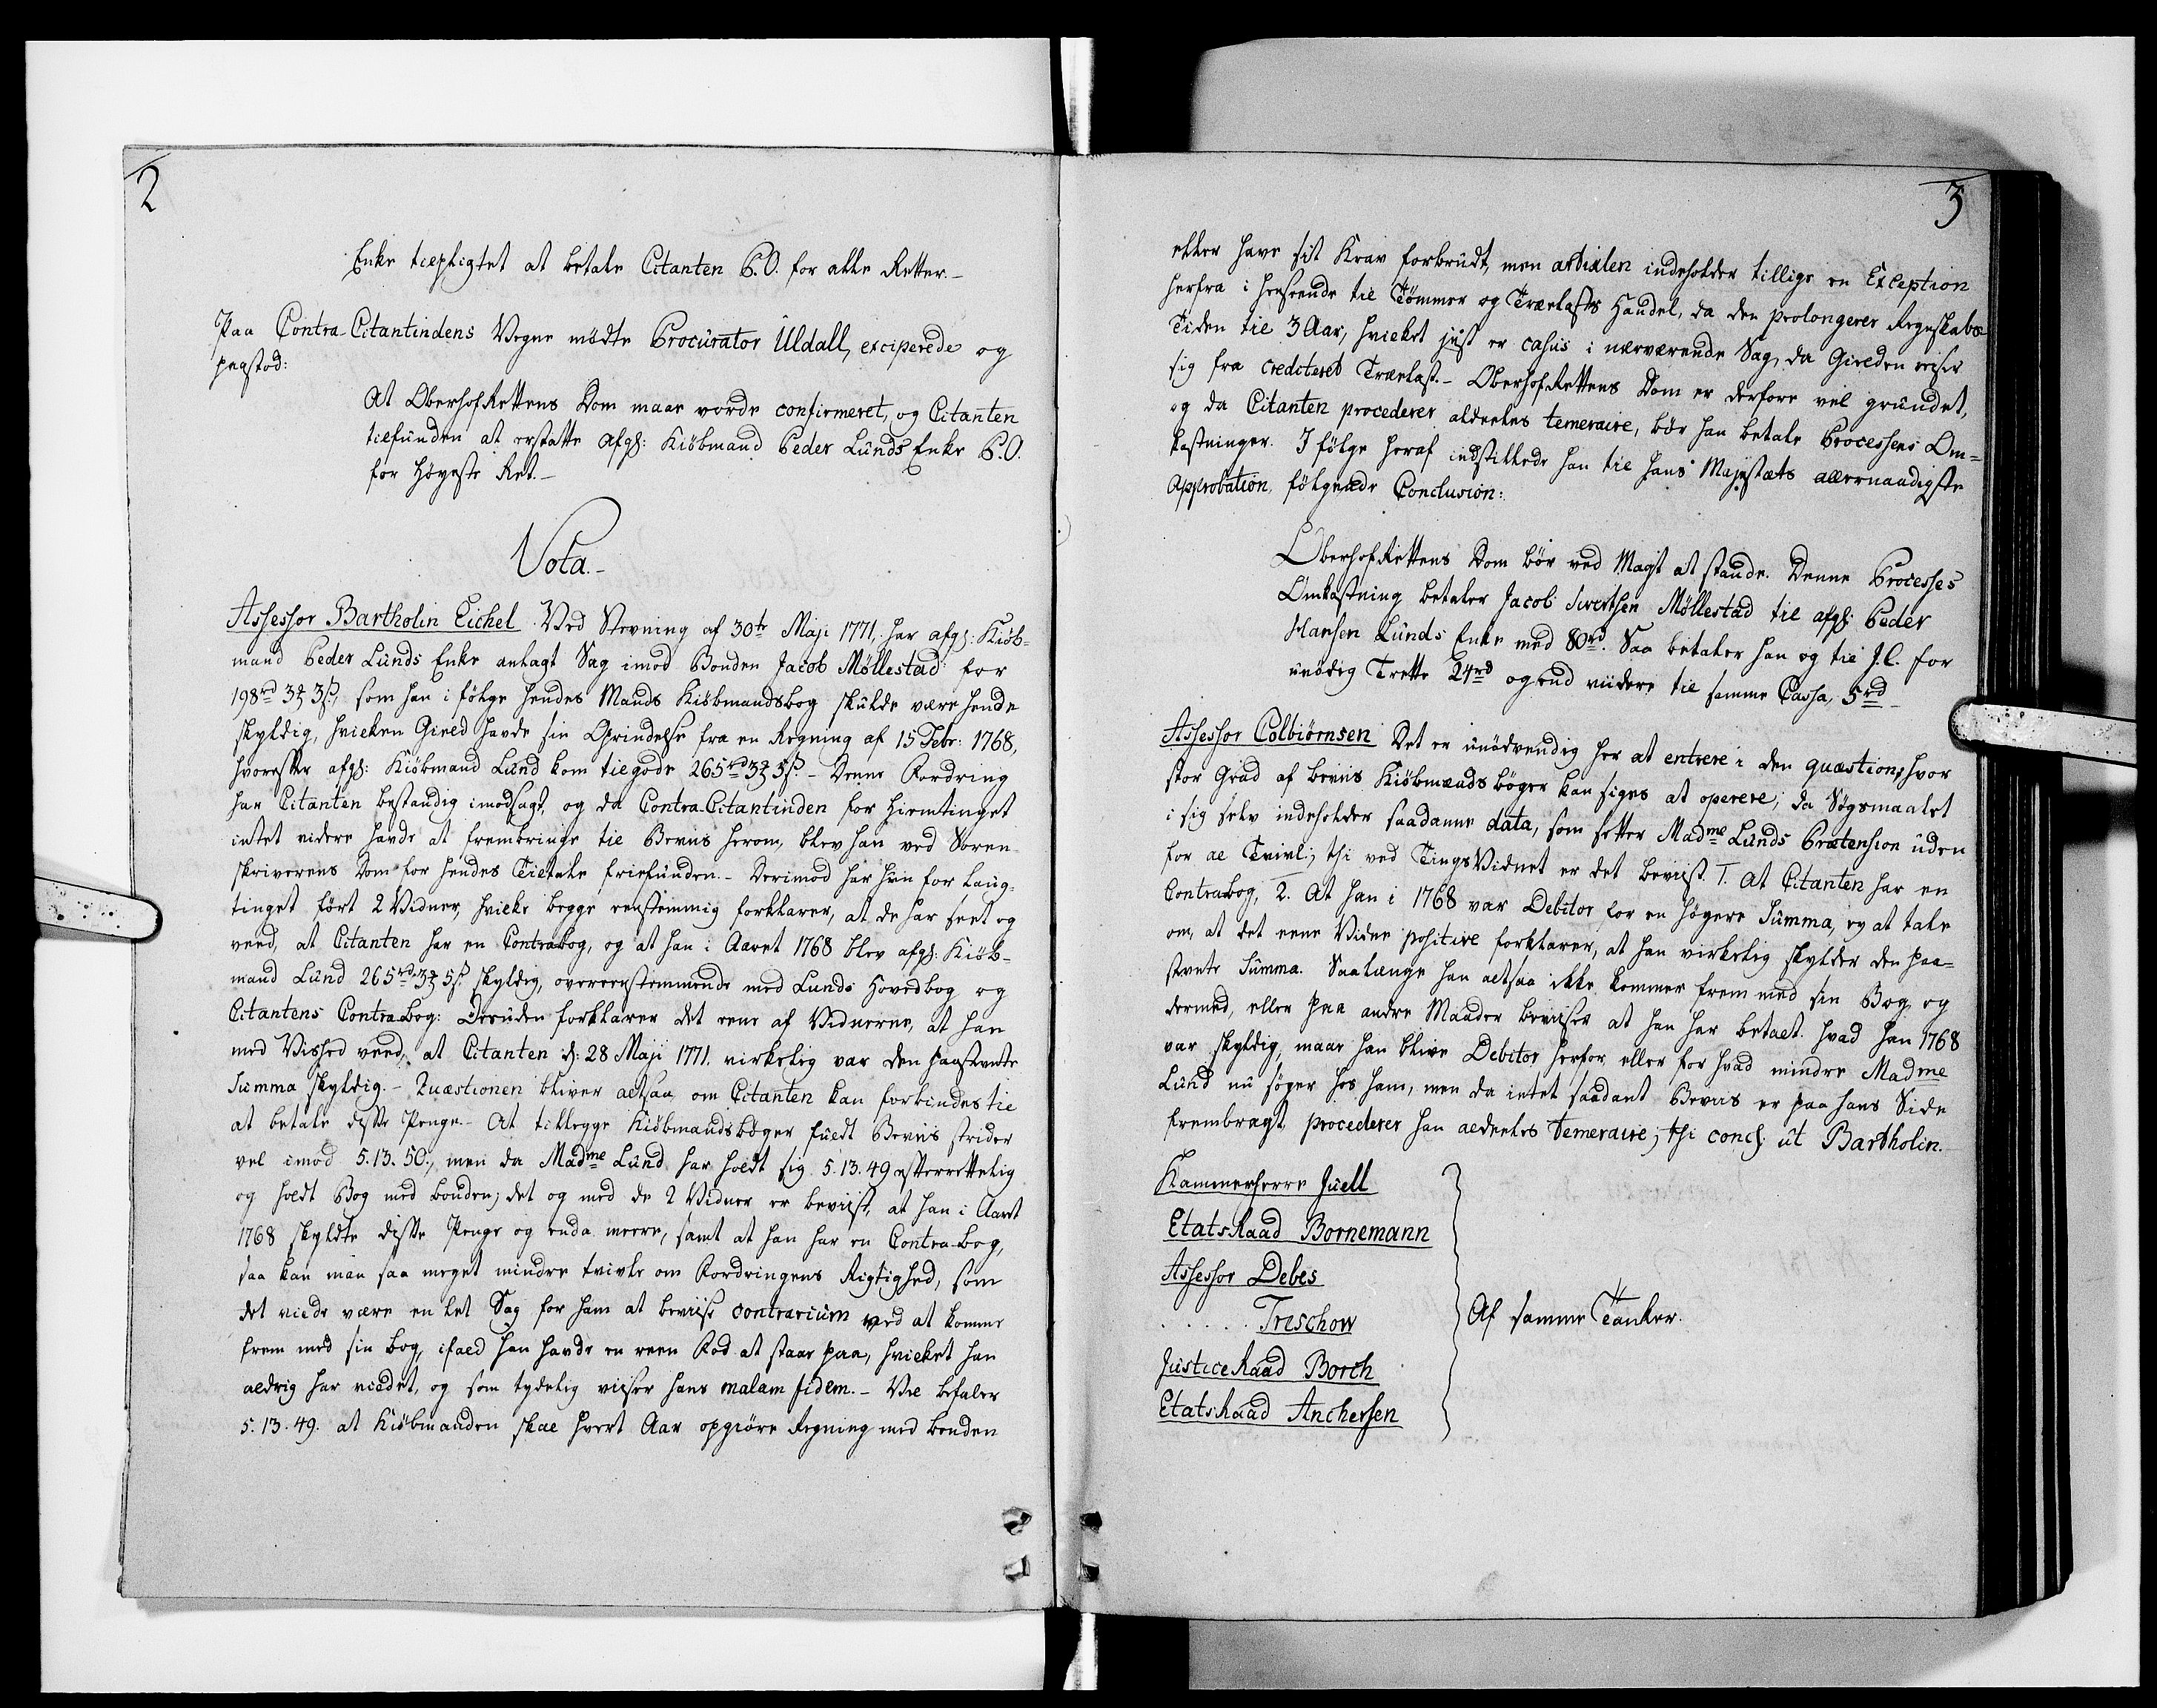 2
Enke tilpligtet at betale Citanten P.O. for alle Retter.-
Paa Contra-Citantindens Vegne mödte Procurator Uldall, exciperede og
paastod:
At OberhofRettens Dom maae vorde confirmeret, og Citanten
tilfunden at erstatte afg: Kiöbmand Peder Lunds Enke P.O.
for Höyeste Ret.-
Vota.-
Assessor Bartholin Eichel. Ved Stevning af 30te Maji 1771, har afg: Kiöb-
mand Peder Lunds Enke anlagt Sag imod Bonden Jacob Möllestad for
198rd 3 3s, som han i fölge hendes Mands Kiöbmandsbog skulde være hende
skyldig, hvilken Gield havde sin Oprindelse fra en Regning af 15 Febr: 1768,
hvorefter afg: Kiöbmand Lund kom tilgode 265rd 3 5s.- Denne Fordring
har Citanten bestandig imodsagt, og da Contra-Citantinden for Hiemtinget
intet videre havde at frembringe til Beviis herom, blev han ved Soren-
skriverens Dom for hendes Tiltale friefunden.- Derimod har hun for Laug-
tinget fört 2 Vidner, hvilke begge eenstemmig forklarer, at de har seet og
veed, at Citanten har en Contrabog, og at han i Aaret 1768 blev afg: Kiöb-
mand Lund 265rd 3 5s. skyldig, overeenstemmende med Lunds Hovedbog og
Citantens ContraBog: Desuden forklarer det eene af Vidnerne, at han
med Vished veed, at Citanten d: 28 Maji 1771. virkelig var den paastevnte
Summa skyldig.- Quæstionen bliver altsaa, om Citanten kan forbindes til
at betale disse Penge.- At tillegge Kiöbmandsböger fuldt Beviis strider
vel imod 5.13.50., men da Madme Lund har holdt sig 5.13.49 efterrettelig
og holdt Bog med bonden; det og med de 2 Vidner er beviist, at han i Aaret
1768 skyldte disse Penge og enda meere, samt at han har en Contra-bog,
saa kan man saa meget mindre tvivle om Fordringens Rigtighed, som
det vilde være en let Sag for ham at beviise contrarium ved at komme
frem med sin bog, ifald han havde en reen Fod at staae paa, hvilket han
aldrig har villet, og som tydelig viiser hans malam fidem.- Vel befaler
5.13.49. at Kiöbmanden skal hvert Aar opgiöre Regning med bonden
3
eller have sit Krav forbrudt, men artiklen indeholder tillige en Exception
herfra i henseende til Tömmer og Trælasts Handel, da den prolongerer Regnskabs
Tiden til 3 Aar, hvilket just er casus i nærværende Sag, da Gielden reiser
sig fra crediteret Trælast.- OberhofRettens Dom er derfore vel grundet,
og da Citanten procederer aldeeles temeraire, bör han betale Processens Om-
kastninger. I fölge heraf indstillede han til Hans Majestæts allernaadigste
Approbation, fölgende Conclusion:
OberhofRettens Dom bör ved Magt at stande. Denne Processes
Omkastning betaler Jacob Sivertsen Möllestad til afg: Peder
Hansen Lunds Enke med 80rd. Saa betaler han og til J.C. for
unödig Trette 24rd og end viidere til samme Cassa, 5rd.-
Assessor Colbiörnsen Det er unödvendig her at entrere i den quæstion, hvor
stor Grad af beviis Kiöbmænds böger kan siges at operere; da Sögsmaalet
i sig selv indeholder saadanne data, som setter Madme Lunds Prætension uden
for al Tvivl; thi ved TingsVidnet er det beviist 1. At Citanten har en
Contrabog, 2. At han i 1768 var Debitor for en högere Summa, ey at tale
om, at det eene Vidne positive forklarer, at han virkelig skylder den paa-
stevnte Summa. Saalænge han altsaa ikke kommer frem med sin Bog, og
dermed, eller paa andre Maader beviiser at han har betalt hvad han 1768
var skyldig, maae han blive Debitor herfor, eller for hvad mindre Madme
Lund nu söger hos ham, men da intet saadant Beviis er paa hans Side
frembragt, procederer han aldeeles temeraire; thi concl: ut Bartholin.
Kammerherre Juell
EtatsRaad Bornemann
Assessor Debes
. . . . . Treschow
Af samme Tanker.
JusticeRaad Borch
EtatsRaad Anchersen